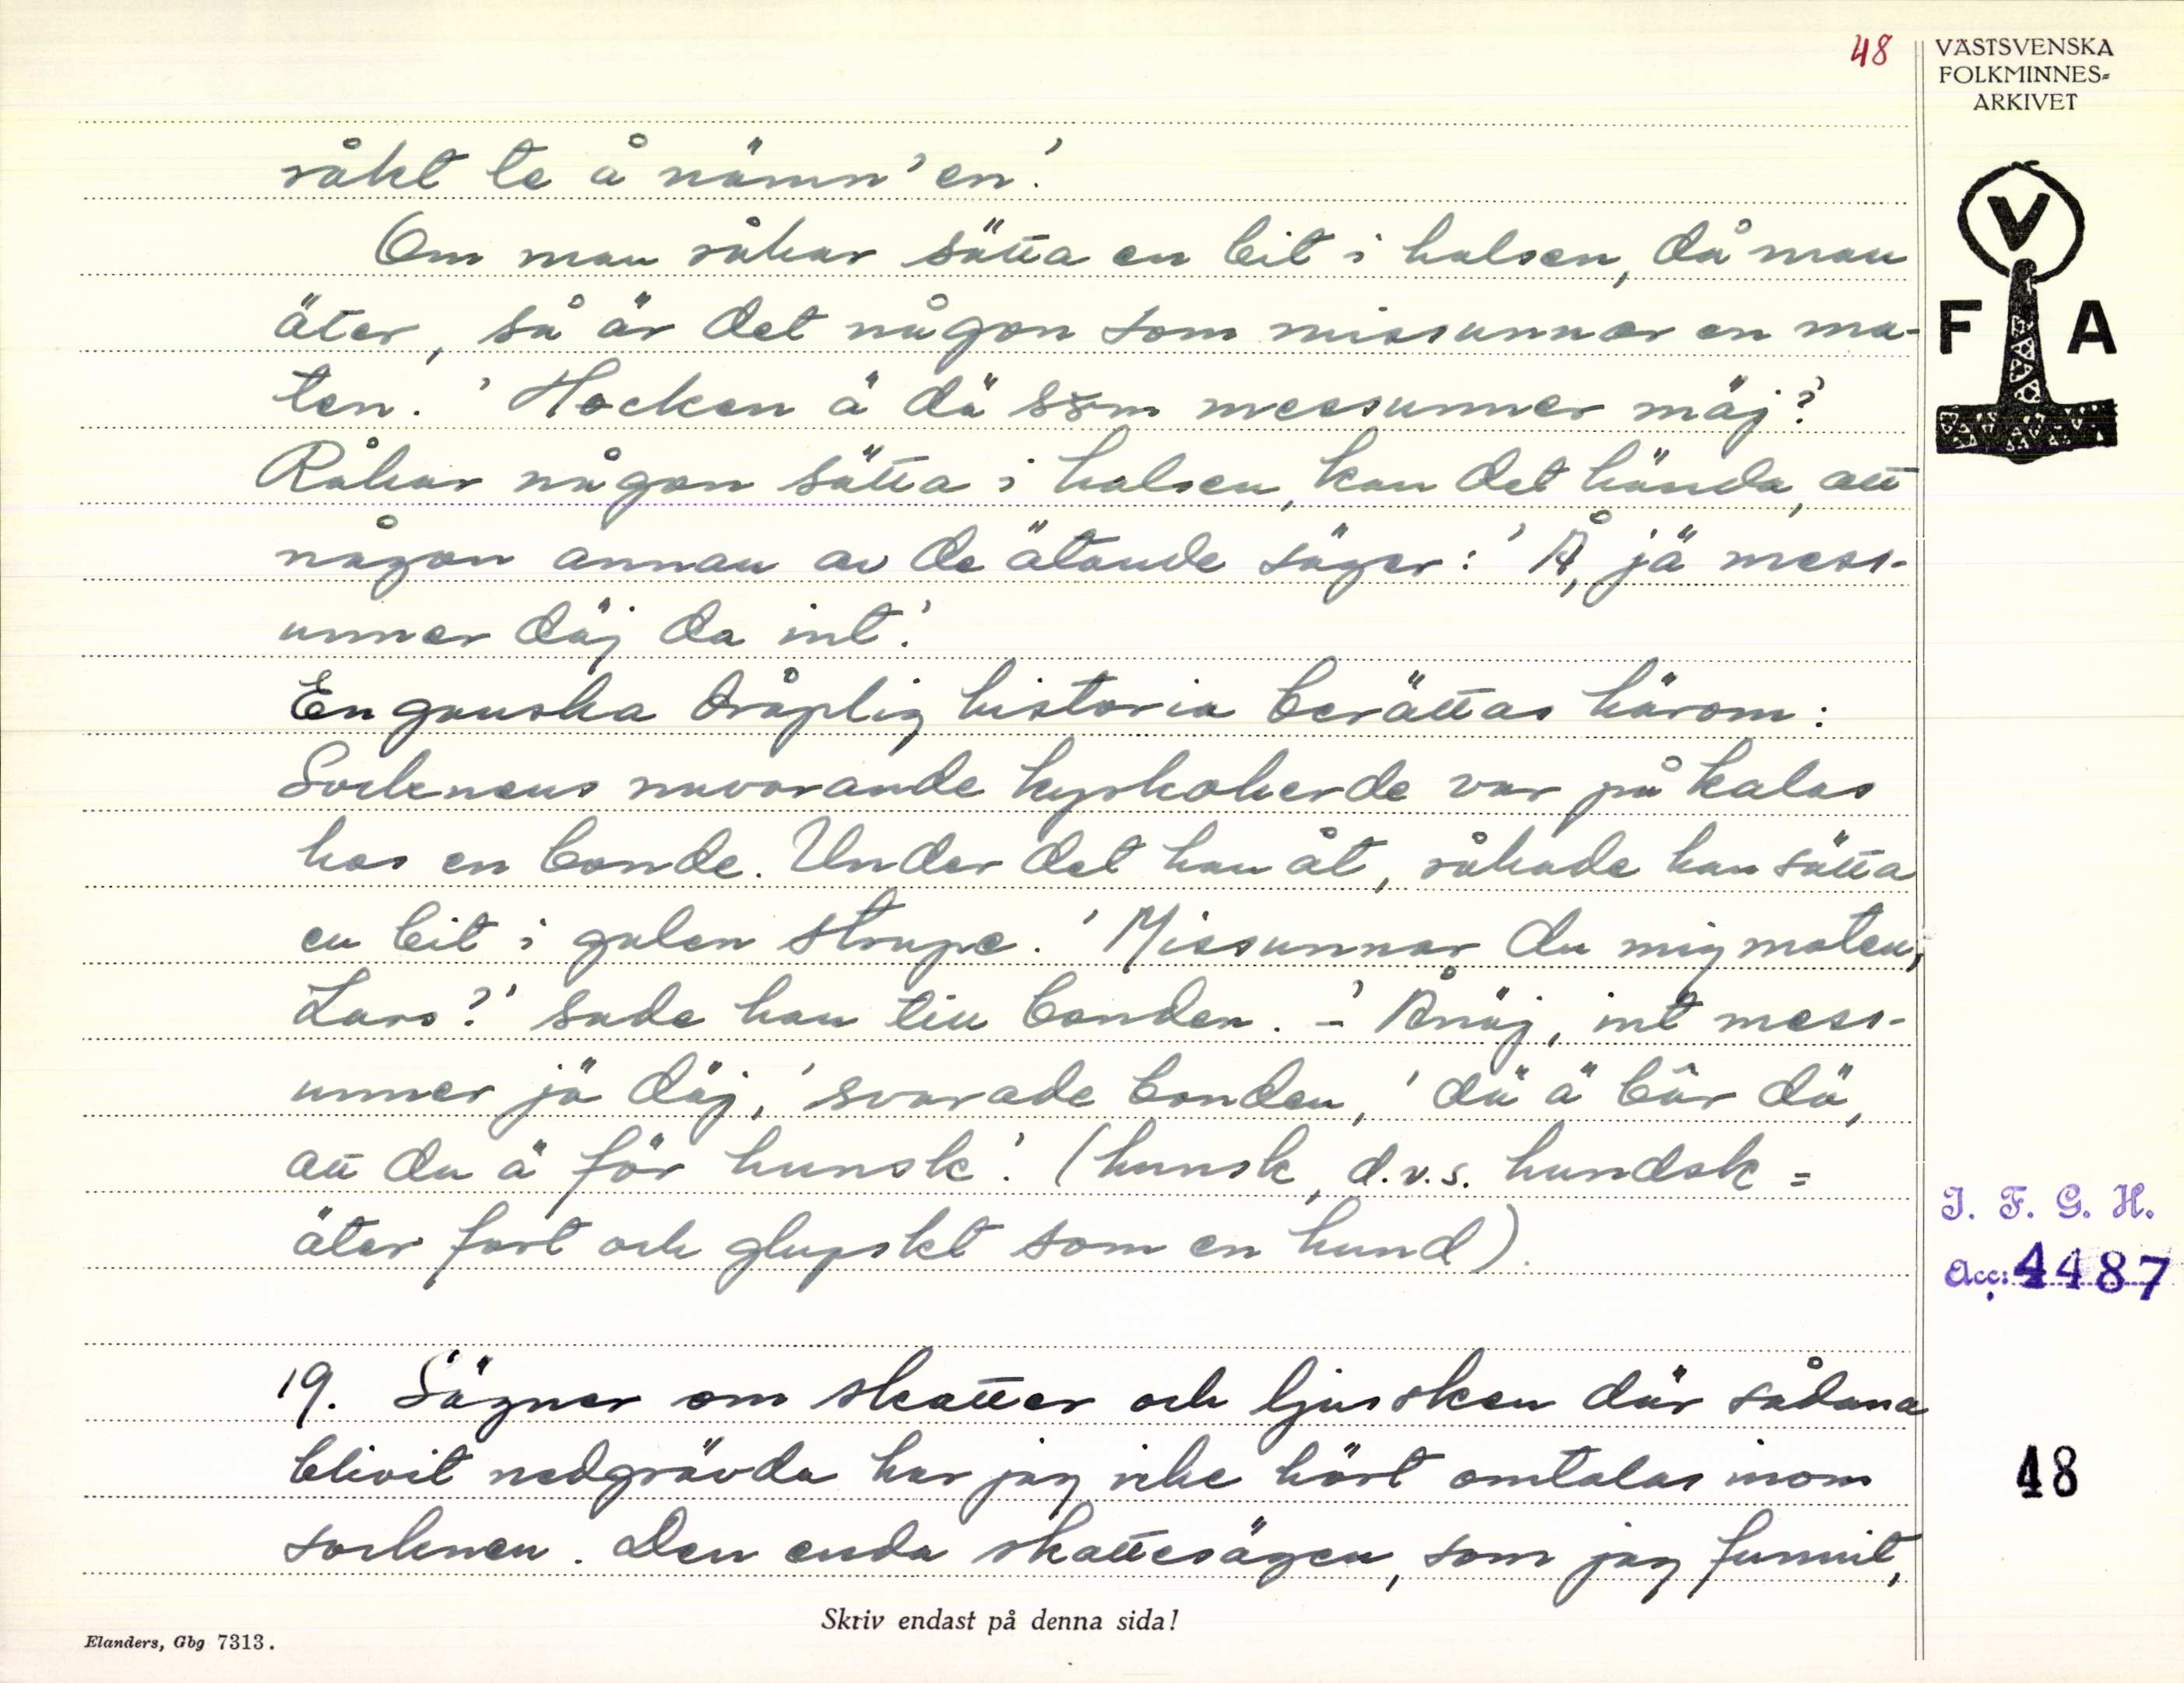 48
VÄSTSVENSKA
FOLKMINNES=
ARKIVET
V
F A
råkt te å nämn' en'.
Om man råkar sätta en bit i halsen, då man
äter, så är det någon som missunnar en ma-
ten. 'Hocken ä dä som messunner mäj?'
Råkar någon sätta i halsen, kan det hända, att
någon annan av de ätande säger: 'Å, jä mess-
unner däj da int'.
En ganska dråplig historia berättas härom:
Socknens nuvarande kyrkoherde var på kalas
hos en bonde. Under det han åt, råkade han sätta
en bit i galen strupe. 'Missunnar du mig maten,
Lars?' sade han till bonden. - 'Ånäj, int mess-
unner jä däj,' svarade bonden, 'dä ä bår dä,
att du ä för hunsk'. (hunsk, d.v.s. hundsk =
äter fort och glupskt som en hund).
19. Sägner om skatter och ljussken där sådana
blivit nedgrävda har jag icke hört omtalas inom
socknen. Den enda skattesägen, som jag funnit,
I. F. G. H.
Acc: 4487
48
Skriv endast på denna sida!
Elanders, Gbg 7313.